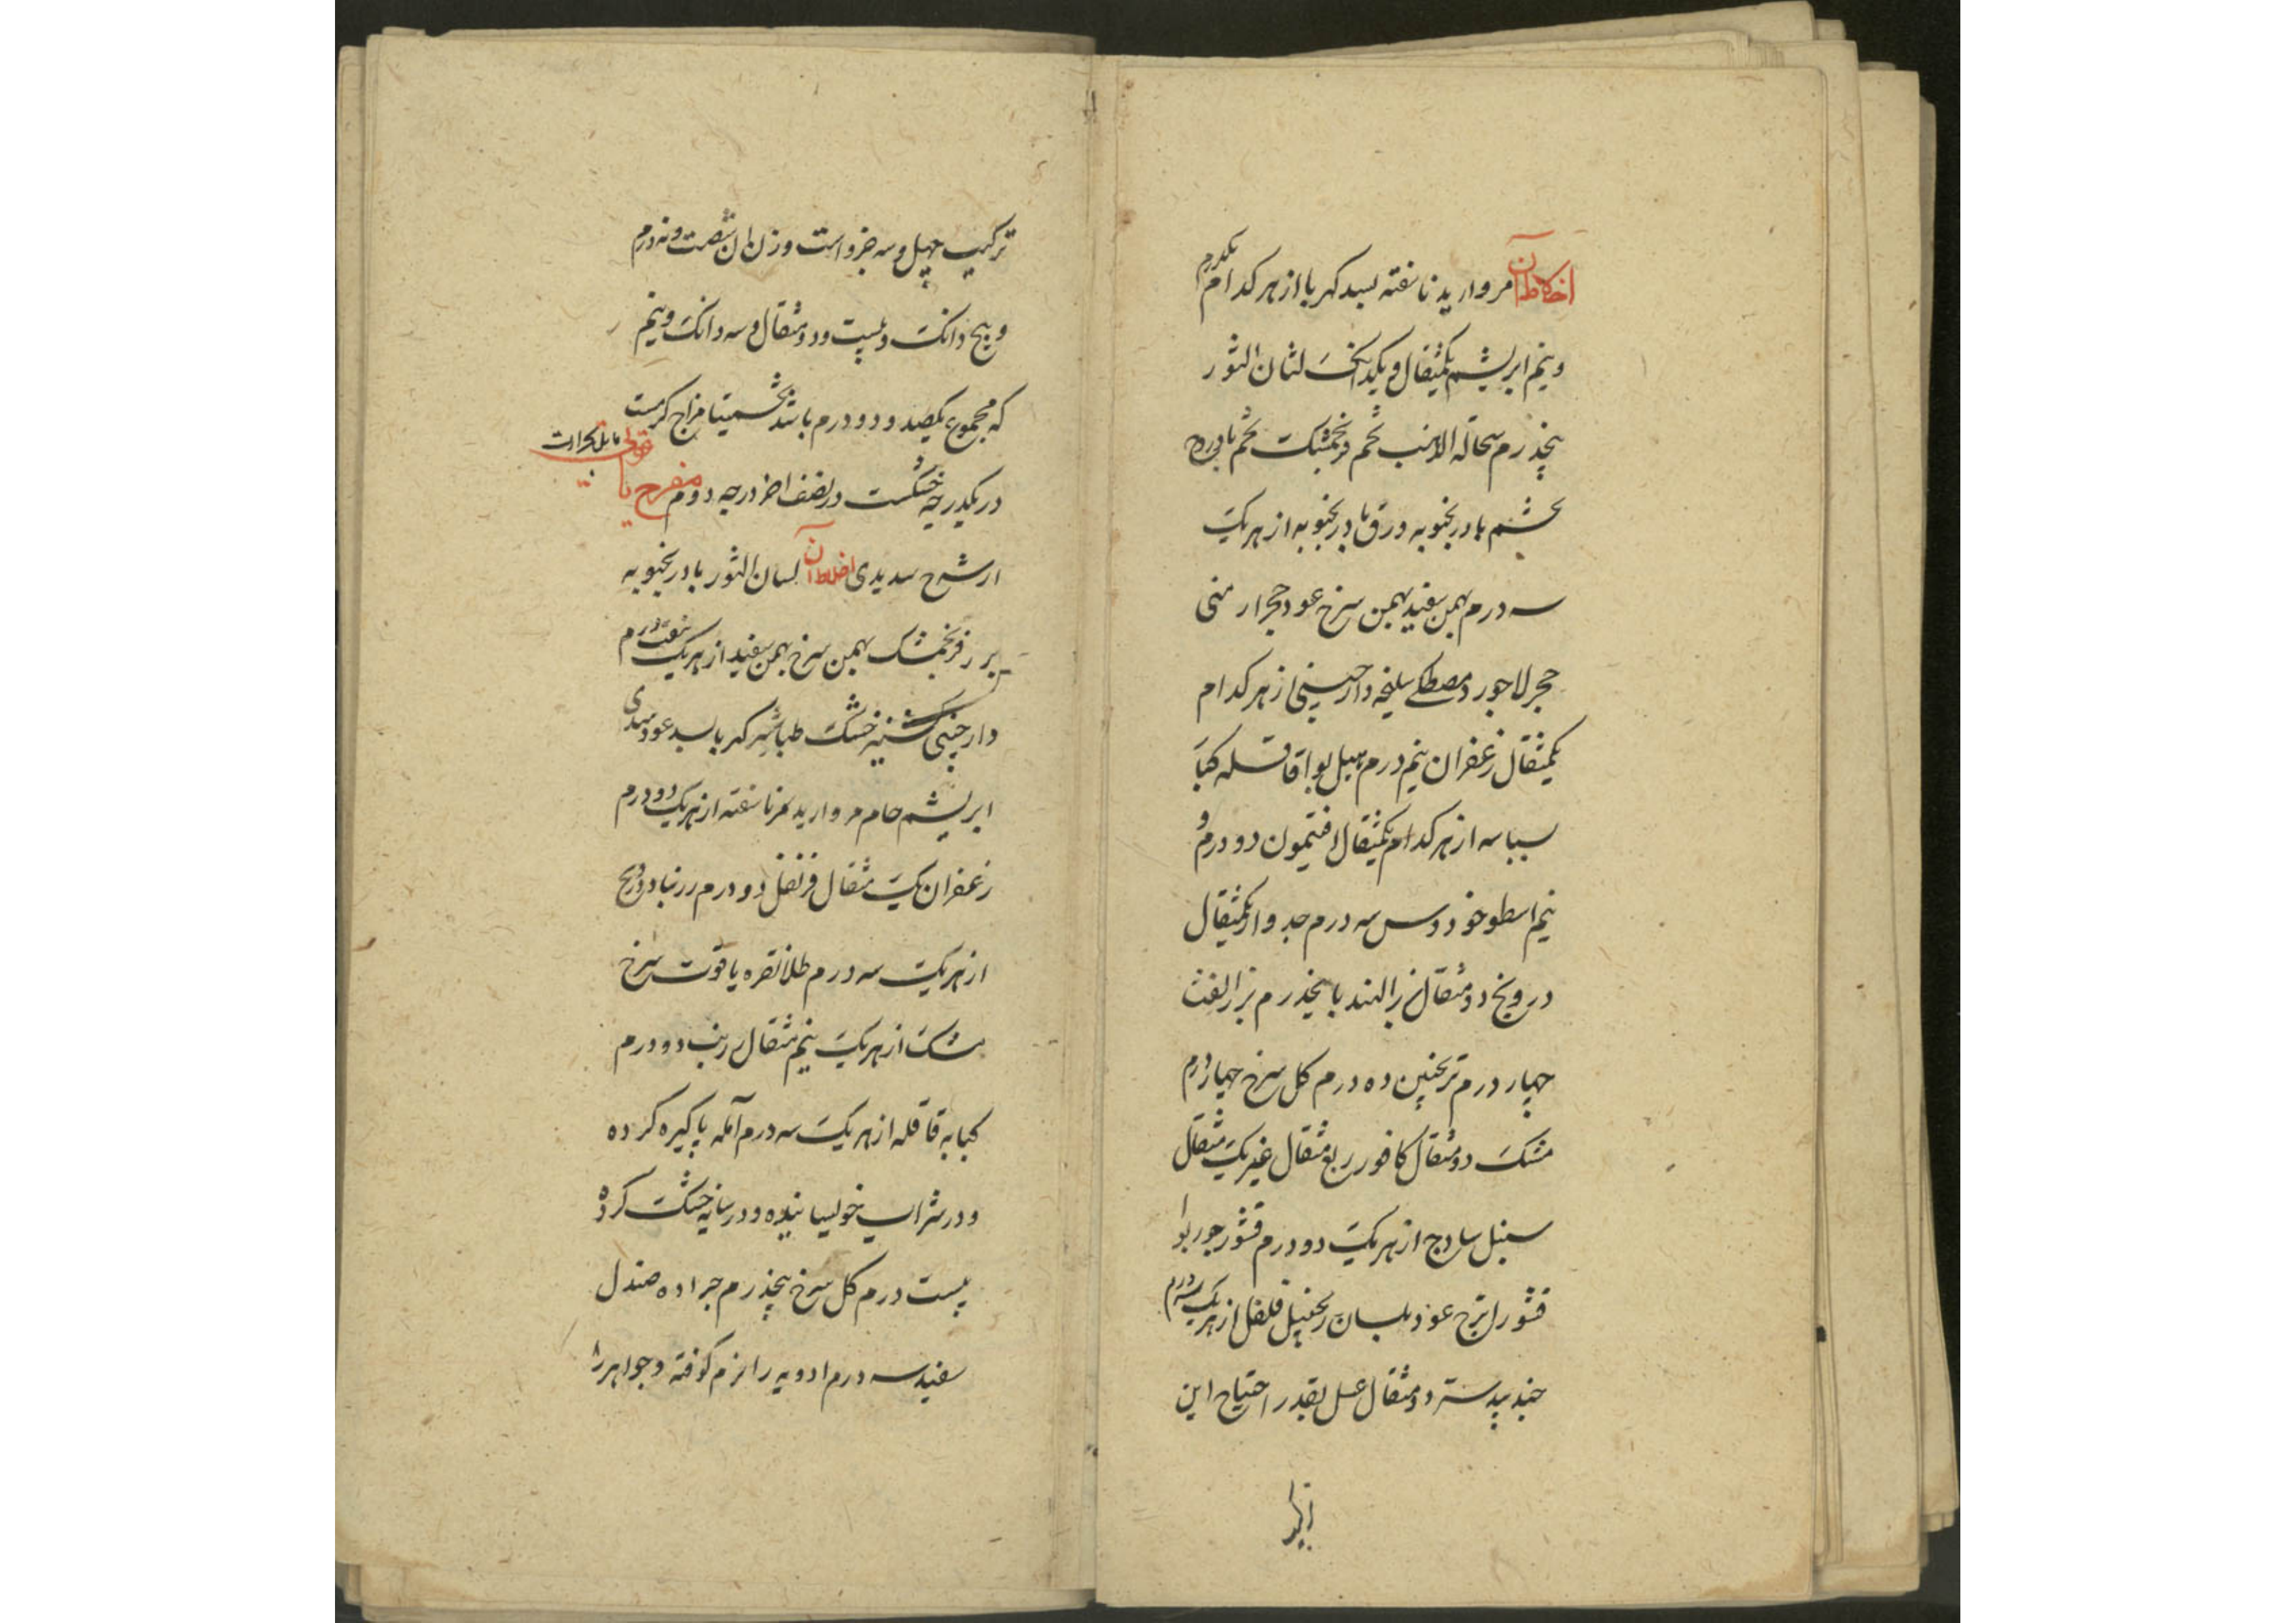 اخلاط آن مروارید ناسفته بسد کهربا از هر کدام یکدرم
و نیم ابریشم یکمثقال و یکدانک لسان الثور
پنجدرم سحاله الذهب تخم فرنجمشک تخم بادروج
تخم بادرنجبویه ورق بادرنجبویه از هر یک
سه درم بهمن سفید بهمن سرخ عود حجر ارمنی
حجر لاجورد مصطکی سلیخه دارچینی از هر کدام
یکمثقال زعفران نیم درم هیل بوا قاقله کبابه
بسباسه از هر کدام یکمثقال افتیمون دو درم و
نیم اسطوخودوس سه درم جدوار یکمثقال
درونج دو مثقال بزر الهندبا پنجدرم بزر القثا
چهار درم ترنجبین ده درم کل سرخ چهار درم
مشک دو مثقال کافور ربع مثقال عنبر یک مثقال
سنبل ساذج از هر یک دو درم قشور جوزبوا
قشور اترج عود بلسان زنجبیل فلفل از هر یک سه درم
جندبیدستر دو مثقال عسل بقدر احتیاج این
ترکیب چهل و سه جزو است وزن آن شصت و نه درم
و پنج دانک و بیست و دو مثقال و سه دانک و نیم
که مجموع یکصد و دو درم باشد تخمینا مزاج گرمست
در یکدرجه خشکست در نصف اخر درجه دوم مفرح یاقوتی مایل بحرارت
از شرح سدیدی اخلاط آن لسان الثور بادرنجبویه
بزر فرنجمشک بهمن سرخ بهمن سفید از هر یک هفت درم
دارچینی کشنیز خشک طباشیر کهربا بسد عود هندی
ابریشم خام مروارید ناسفته از هر یک دو درم
زعفران یک مثقال قرنفل دو درم زرنباد درونج
از هر یک سه درم طلا نقره یاقوت سرخ
مشک از هر یک نیم مثقال زرنب دو درم
کبابه قاقله از هر یک سه درم آمله پاکیزه کرده
و در شراب خویسانیده و در سایه خشک کرده
بیست درم کل سرخ پنجدرم جراده صندل
سفید سه درم ادویه را نرم کوفته و جواهر را